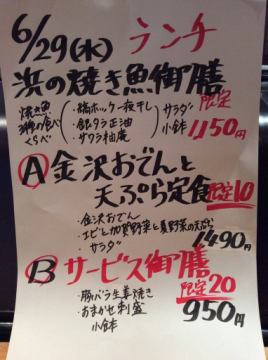 6/29(水) ランチ
浜の焼き魚御膳
焼魚3種の食べくらべ
・縞ホッケ一夜干し
・銀タラ正油
・サワラ柚庵
サラダ
小鉢
限定
1150円
Ⓐ金沢おでんと
天ぷら定食 限定10
・金沢おでん
・エビと加賀野菜と夏野菜の天ぷら
・サラダ
1490円
Ⓑサービス御膳
限定20
・豚バラ生姜焼き
・おまかせ刺盛
小鉢
950円